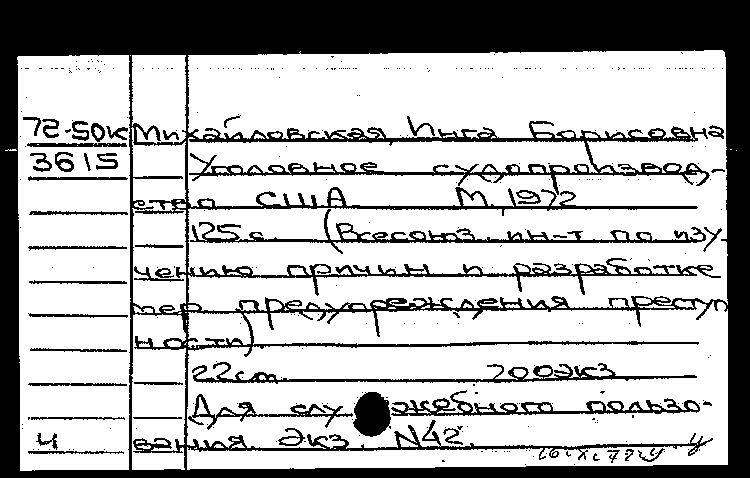 72-50к Михайловская, Инга Борисовна
3615 Уголовное судопроизвод-
ство США. М. 1972
125 с. (Всесоюз. ин-т по изу-
чению причин и разработке
мер предупреждения преступ
ности).
22 см. 200 экз.
Для служебного пользо-
ч вания. Экз. N42.